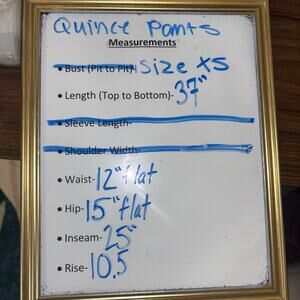 Quince Pants
Measurements
• Bust (Pit to Pit)- Size XS
• Length (Top to Bottom)- 37"
• Sleeve Length-
• Shoulder Width-
• Waist- 12" flat
• Hip- 15" flat
• Inseam- 25"
• Rise- 10.5